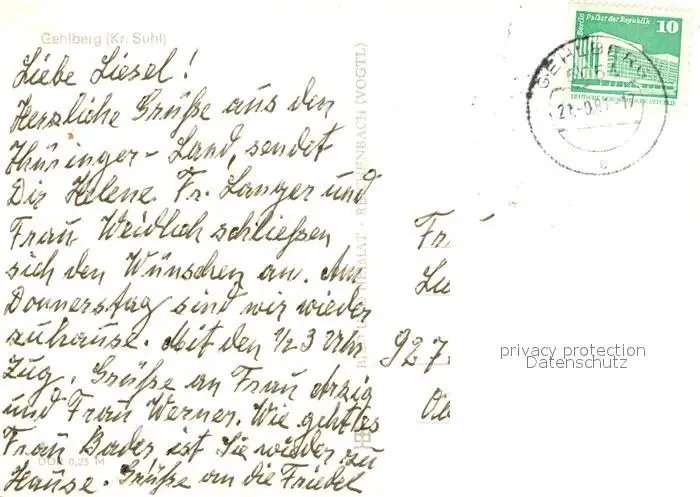 Gehlberg (Kr. Suhl)
Liebe Liesel!
Herzliche Grüße aus den
Thüringer-Land, sendet
Dir Helene. Fr. Langer und
Frau Weidlich schließen
sich den Wünschen an. Am
Donnerstag sind wir wieder
zuhause. Mit den 1/2 3 Uhr
Zug. Grüße an Frau
und Frau Werner. Wie geht es
Frau Bader ist Sie wieder zu
Hause. Grüße an die Friedel
DDR 0,25 M
BILD UND HEIMAT · REICHENBACH (VOGTL)
Berlin Palast der Republik
10
DEUTSCHE DEMOKRATISCHE REPUBLIK
GEHLBERG
Fr
927
privacy protection
Datenschutz